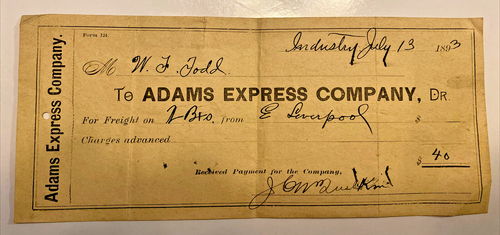 Adams Express Company.
Form 124
Industry July 13 1893
M W. F. Todd
To ADAMS EXPRESS COMPANY, Dr.
For Freight on Bxs. from E Liverpool $
Charges advanced
$ 40
Received Payment for the Company,